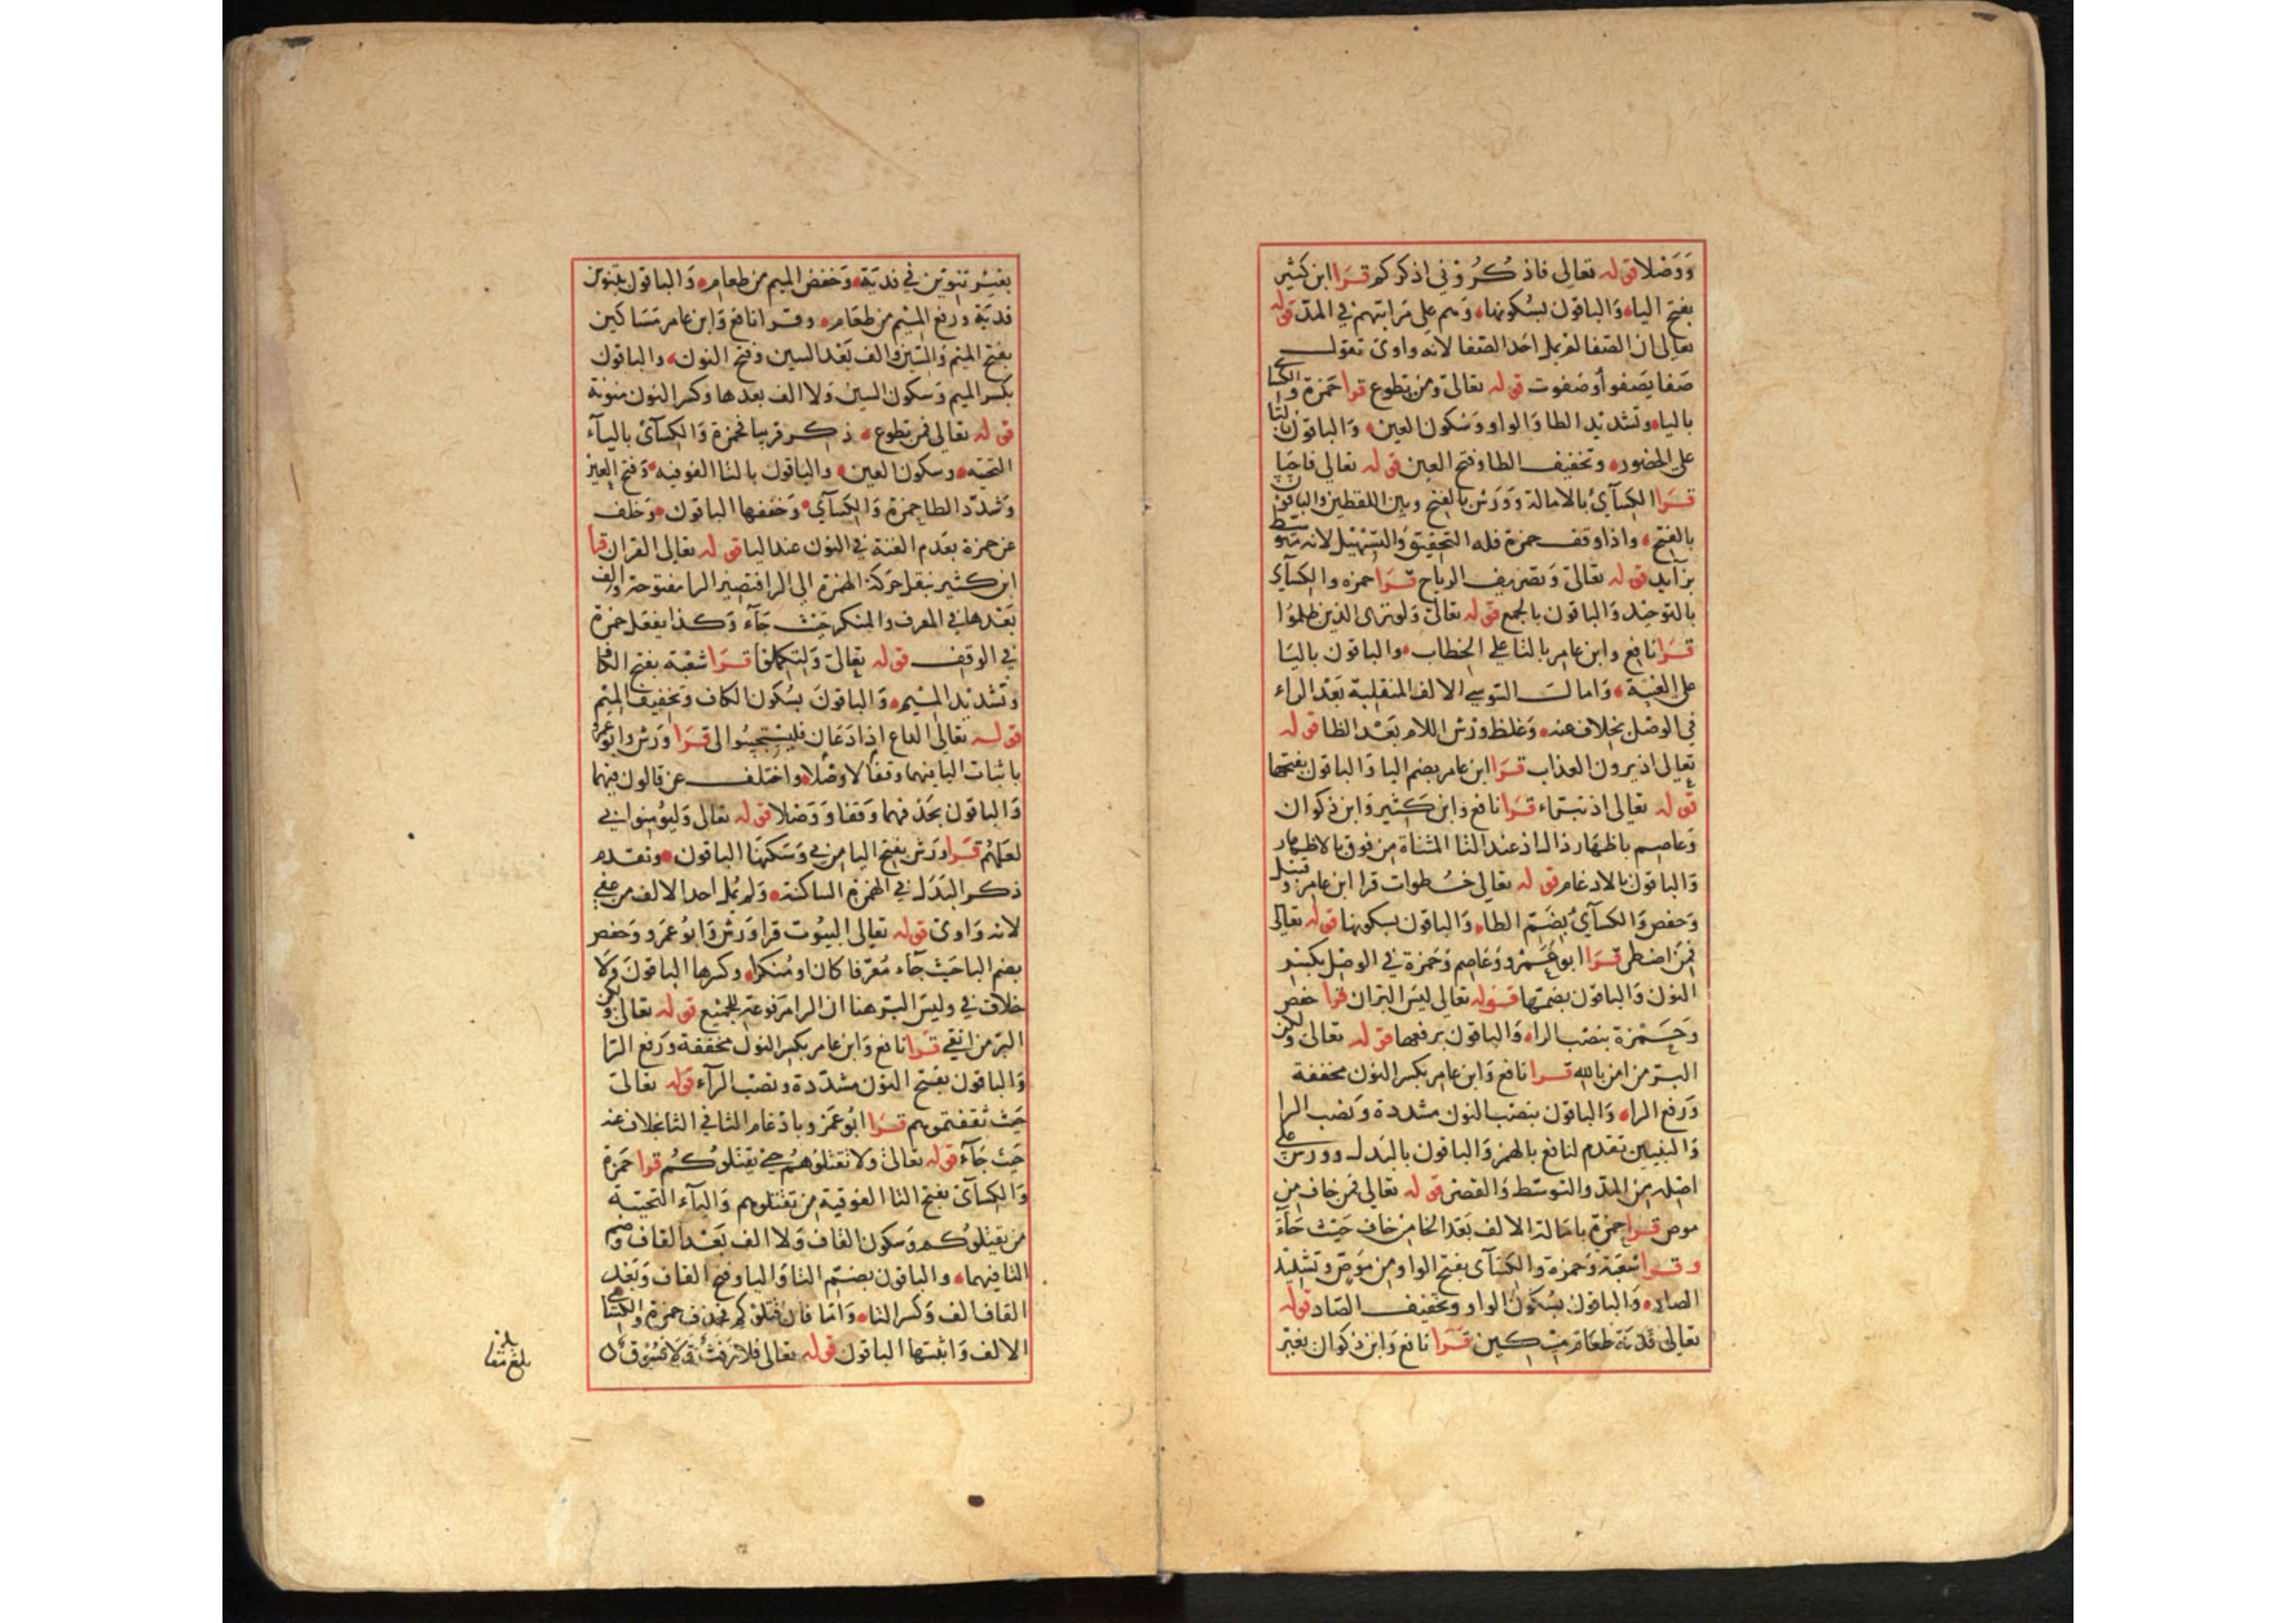 وَوَصْلا قوله تعالى فاذكُرُوني اذكركم قَرَا ابن كثير
بفتح الياء وَالباقون بسُكونها وَهم على مَرَاتبهم في المدّ قوله
تعالى ان الصّفا لم يمل احَد الصّفا لانه واوىّ تقول
صَفا يَصفو أو صَفوت قوله تعالىٰ ومن تطوع قرا حَمزة والكسائي
بالياء وتَشديد الطا وَالواو وَسُكون العين وَالباقون بالتا
على الحضور وتخفيف الطا وفتح العين قوله تعالى فاحيَا
قَرَا الكِسآئ بالامالة وَوَرَش بالفتح وبين اللفظين والباقون
بالفتح واذا وقف حمزة فله التحقيق وَالتسْهيل لانه متوسط
بزآيد قوله تعالىٰ وَتصريف الرياح قَرَا حمزه والكسآئ
بالتوحيد وَالباقون بالجمع قوله تعالىٰ وَلو ترى الذين ظلمُوا
قَرَا نافع وابن عامر بالتا على الخطاب والباقون باليَا
على الغيبَة وَامالت السّوسي الالف المنقلبة بَعْد الراء
في الوصْل بخلاف عنه وَغلظ ورْش اللام بَعْد الظا قوله
تعالى اذ يرون العذاب قَرَا ابن عامر بضم اليا وَالباقون بفتحها
قوله تعالى اذ تبرّاء قَرَا نافع وَابن كَثير وَابن ذكوان
وَعاصم باظهار ذال اذ عند التا المثناة من فوق بالاظهار
وَالباقون بالادغام قوله تعالى خُطوات قرا ابن عامر وقنبل
وَحفص وَالكسآئ بضَمّ الطاء وَالباقون بسكونها قوله تعالى
فمَن اضطر قَرَا ابو عَمْرو وَعَاصم وَحَمزة في الوصْل بكسْر
النون وَالباقون بضمّها قوله تعالى ليسَ البرّ ان قرا حفص
وَحَمْزة بنصْب الراء وَالباقون برفعها قوله تعالىٰ ولكن
البرّ من امن بالله قرا نافع وَابن عامر بكسر النون مخففة
وَرَفع الراء وَالباقون بنصْب النون مشددة وَنصْب الرا
وَالنبيين تقدم لنافع بالهمز وَالباقون بالبَدل وورش على
اصْله من المدّ والتوسّط وَالقصْر قوله تعالى فمن خاف من
موص قرا حمزة بامَالة الالف بَعْد الخا من خاف حَيْث جَآءَ
وقرا شعْبَة وَحمزة وَالكسَآئ بفتح الواو من مُوَصٍّ وتشديد
الصاد وَالباقون بسُكون الواو وتخفيف الصّاد قوله
تعالى فِدْيَة طعَام مسْكين قَرَا نافع وَابن ذكوان بغير
بغيْر تنوين في فديَة وَخفض الميم من طعامِ وَالباقون بتنوين
فديَة ورفع الميْم من طعَام وقرا نافع وَابن عامر مَسَاكين
بفتح الميْم وَالسّين والف بَعْد السين وفتح النون والباقون
بكسْر الميم وَسكون السين وَلا الف بعدها وكسر النون منونة
قوله تعالى فمن تطوع ذكر قريبا فحمزة وَالكسَآئ باليآء
التحتيه وسكون العين والباقون بالتا الفوقيه وَفتح العين
وَشدّد الطا حمزة وَالكسَآئ وَخففها الباقون وَخلف
عن حمزة بعَدم الغنة في النون عند اليا قوله تعالى القران قرأ
ابن كثير بنقل حَركة الهمزة الى الرا فتصير الرا مفتوحة والف
بَعْدها في المعرف والمنكر حَيْث جَآءَ وَكذا يفعَل حمزة
في الوقف قوله تعالىٰ وَلتكملوا قَرَا شعْبَة بفتح الكاف
وتَشديد الميْم وَالباقونَ بسُكون الكاف وَتخفيف الميْم
قوله تعالى الداع اذا دَعَان فليَسْتجيبُوا لى قَرَا وَرْش وابو عمرو
باثبات اليا فيهما وقفًا لا وصْلا واختلف عن قالون فيهما
وَالباقون بحَذفهما وَقفا وَوَصْلا قوله تعالى وَليُؤمنوا بي
لعلهُم قَرَا وَرَش بفتح اليا من بي وَسَكنهَا الباقون وتقدم
ذكر البَدَل في الهمزة الساكنة وَلم يُمل احد الالف من عفى
لانه وَاوىّ قوله تعالى البيُوت قرا وَرْش وَابُو عَمْرو وَحفص
بضم البا حَيْث جَآء مُعَرّفا كان او مُنكرا وكسرها الباقونَ وَلا
خلاف في وليسَ البرّ هنا ان الرا مَرْفوعَة للجَميْع قوله تعالىٰ ولكن
البرّ من اتقى قَرَا نافع وَابن عامر بكسر النون مخففة وَرَفع الرّا
وَالباقون بفتح النون مشدّدة ونصْب الرآء قوله تعالىٰ
حَيْث ثقفتموهم قَرَا ابُو عَمْرو بادْغام الثا في الثا بخلاف عنه
حَيْث جَآءَ قوله تعالىٰ وَلا تقتلوُهُم حتى يقتلُوكُم قرا حَمزة
وَالكسآئ بفتح التا الفوقية من تقتلوهم وَاليآء التحتيَة
من يَقتلوُكُم وَسكون القاف وَلا الف بَعْد القاف وضم
التا فيهما والباقون بضَمّ التا وَاليا وفتح القاف وَبَعْد
القاف الف وَكسر التاء وَامّا فان قتلوكم فحذف حمزة والكسائي
الالف وَاثبتها الباقون قوله تعالى فلا رَفَث وَلا فسُوْق
بلغ مقابلة